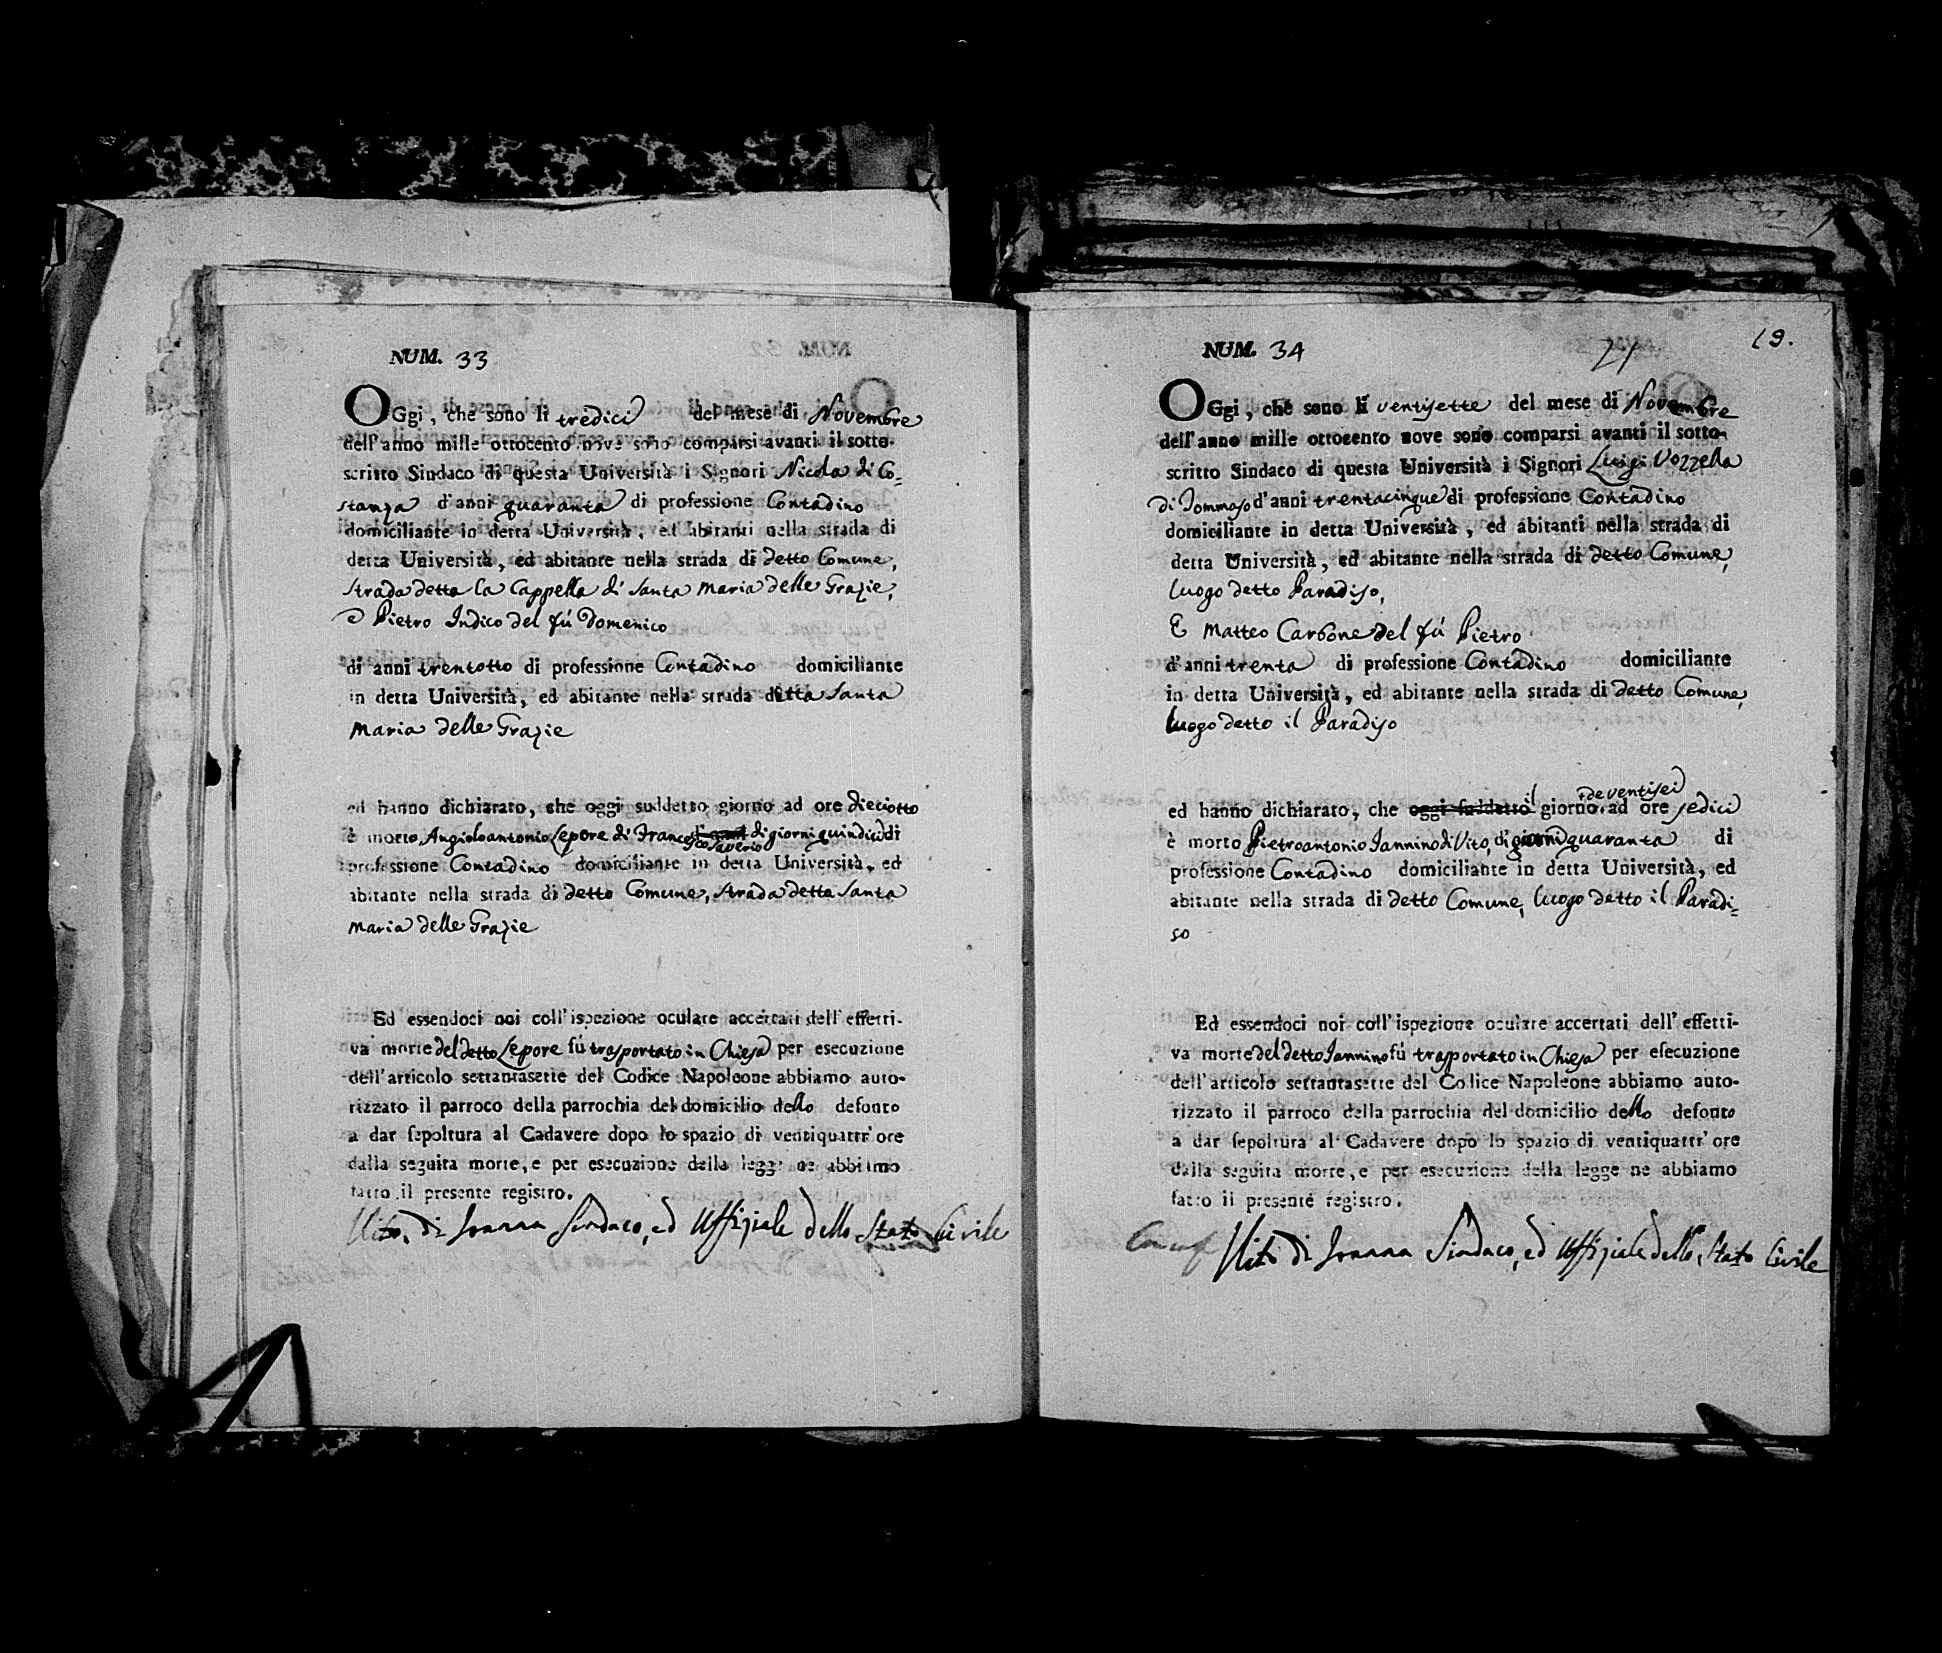 NUM. 33
OGgi, che sono li tredici del mese di Novembre
dell'anno mille ottocento nove sono comparsi avanti il sotto-
scritto Sindaco di questa Università i Signori Nicola di Co=
stanza d'anni quaranta di professione Contadino
domiciliante in detta Università, ed abitanti nella strada di
detta Università, ed abitante nella strada di detto Comune,
strada detta la Cappella di Santa Maria delle Grazie,
e Pietro Indico del fù Domenico
di anni trentotto di professione Contadino domiciliante
in detta Università, ed abitante nella strada detta Santa
Maria delle Grazie
ed hanno dichiarato, che oggi suddetto giorno ad ore dieciotto
è morto Angioloantonio Lepore di Francesco Saverio di giorni quindici di
professione Contadino domiciliante in detta Università, ed
abitante nella strada di detto Comune, strada detta Santa
Maria delle Grazie
Ed essendoci noi coll'ispezione oculare accertati dell'effetti-
va morte del detto Lepore fù trasportato in Chiesa per esecuzione
dell'articolo settantasette del Codice Napoleone abbiamo auto-
rizzato il parroco della parrochia del domicilio dello defonto
a dar sepoltura al Cadavere dopo lo spazio di ventiquattr'ore
dalla seguita morte, e per esecuzione della legge ne abbiamo
fatto il presente registro.
Vito di Ioanna Sindaco, ed Uffiziale dello Stato Civile
NUM. 34
21
19.
OGgi, che sono li ventisette del mese di Novembre
dell'anno mille ottocento nove sono comparsi avanti il sotto-
scritto Sindaco di questa Università i Signori Luigi Vozzella
di Tommaso d'anni trentacinque di professione Contadino
domiciliante in detta Università, ed abitanti nella strada di
detta Università, ed abitante nella strada di detto Comune,
luogo detto Paradiso,
E Matteo Carbone del fù Pietro
d'anni trenta di professione Contadino domiciliante
in detta Università, ed abitante nella strada di detto Comune,
luogo detto il Paradiso
ed hanno dichiarato, che oggi suddetto il giorno de ventisei ad ore sedici
è morto Pietroantonio Iannino di Vito, di giorni quaranta di
professione Contadino domiciliante in detta Università, ed
abitante nella strada di detto Comune, luogo detto il Paradi=
so
Ed essendoci noi coll'ispezione oculare accertati dell'effetti-
va morte del detto Iannino fù trasportato in Chiesa per esecuzione
dell'articolo settantasette del Codice Napoleone abbiamo auto-
rizzato il parroco della parrochia del domicilio dello defonto
a dar sepoltura al Cadavere dopo lo spazio di ventiquattr'ore
dalla seguita morte, e per esecuzione della legge ne abbiamo
fatto il presente registro.
Vito di Ioanna Sindaco, ed Uffiziale dello Stato Civile